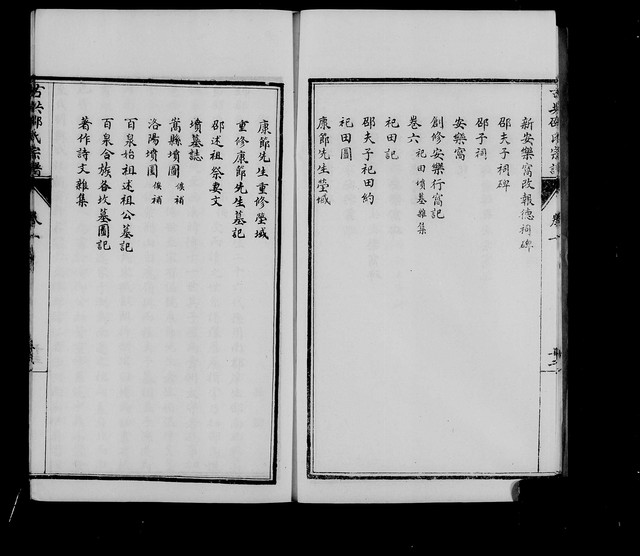 新安樂窩改報德祠碑
邵夫子祠碑
邵子祠
安樂窩
創修安樂行窩記
卷六 祀田墳墓雜集
祀田記
邵夫子祀田約
祀田圖
康節先生塋域
康節先生重修塋域
重修康節先生墓記
邵述祖祭妻文
墳墓誌
嵩縣墳圖 俟補
洛陽墳圖 俟補
百泉始祖述祖公墓記
百泉合族各坎墓圖記
著作詩文雜集
古共邵氏宗譜
卷一